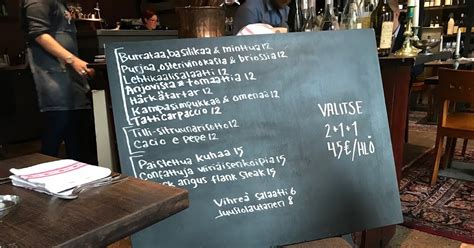 Burrataa, basilikaa & minttua 12
Purjoa, osterivinokasta & briossia 12
Lehtikaalisalaatti 12
Anjovista & tomaattia 12
Härkätartar 12
Kampasimpukkaa & omenaa 12
Tatticarpaccio 12
Tilli-sitruunarisotto 12
Cacio e pepe 12
Paistettua kuhaa 15
Confattuja viiriäisenkoipia 15
Black angus flank steak 15
Vihreä salaatti 6
Juustolautanen 8
VALITSE
2+1+1
45€/HLÖ